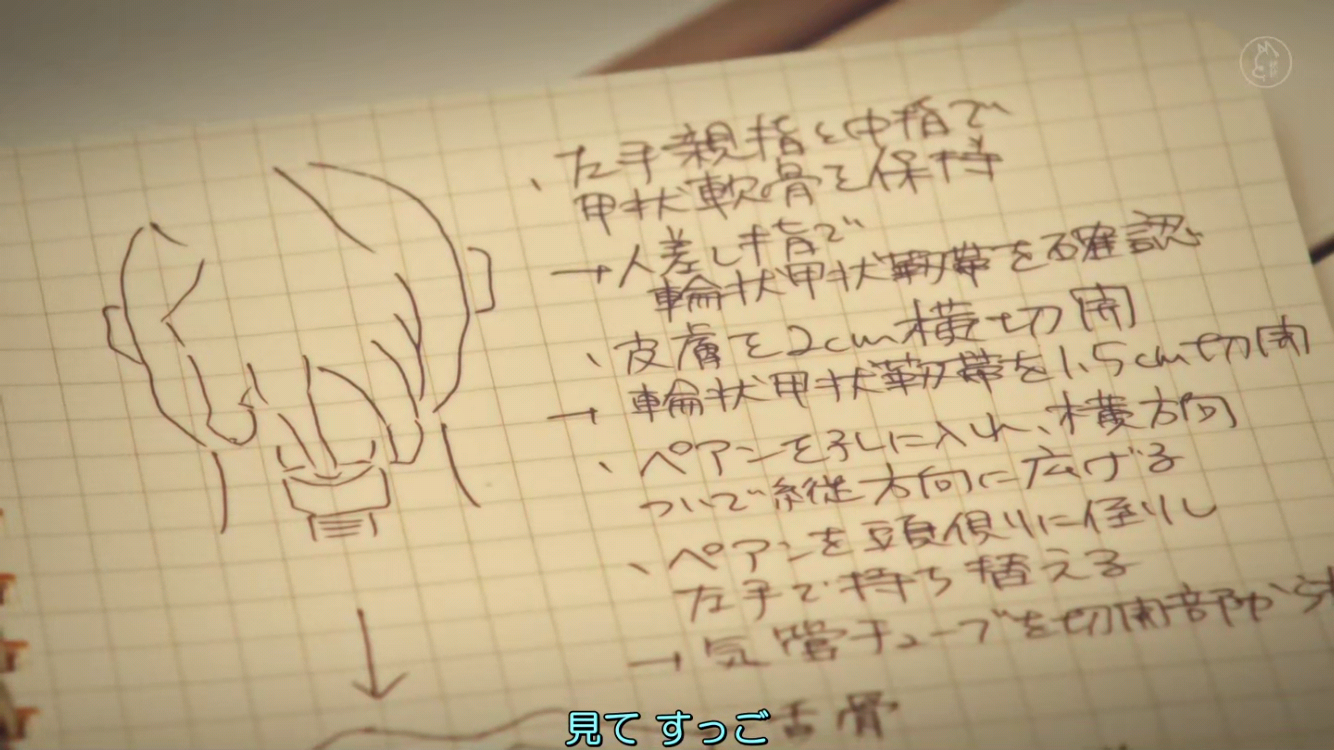 、左手親指と中指で
甲状軟骨を保持
→人差し指で
輪状甲状靭帯を確認
、皮膚を2cm横切開
→ 輪状甲状靭帯を1.5cm切開
、ペアンを孔に入れ、横方向
ついで縦従方向に広げる
、ペアンを頭側りに倒りし
左手で持ち替える
→ 気管チューブを切開部から
舌骨
見て すっご